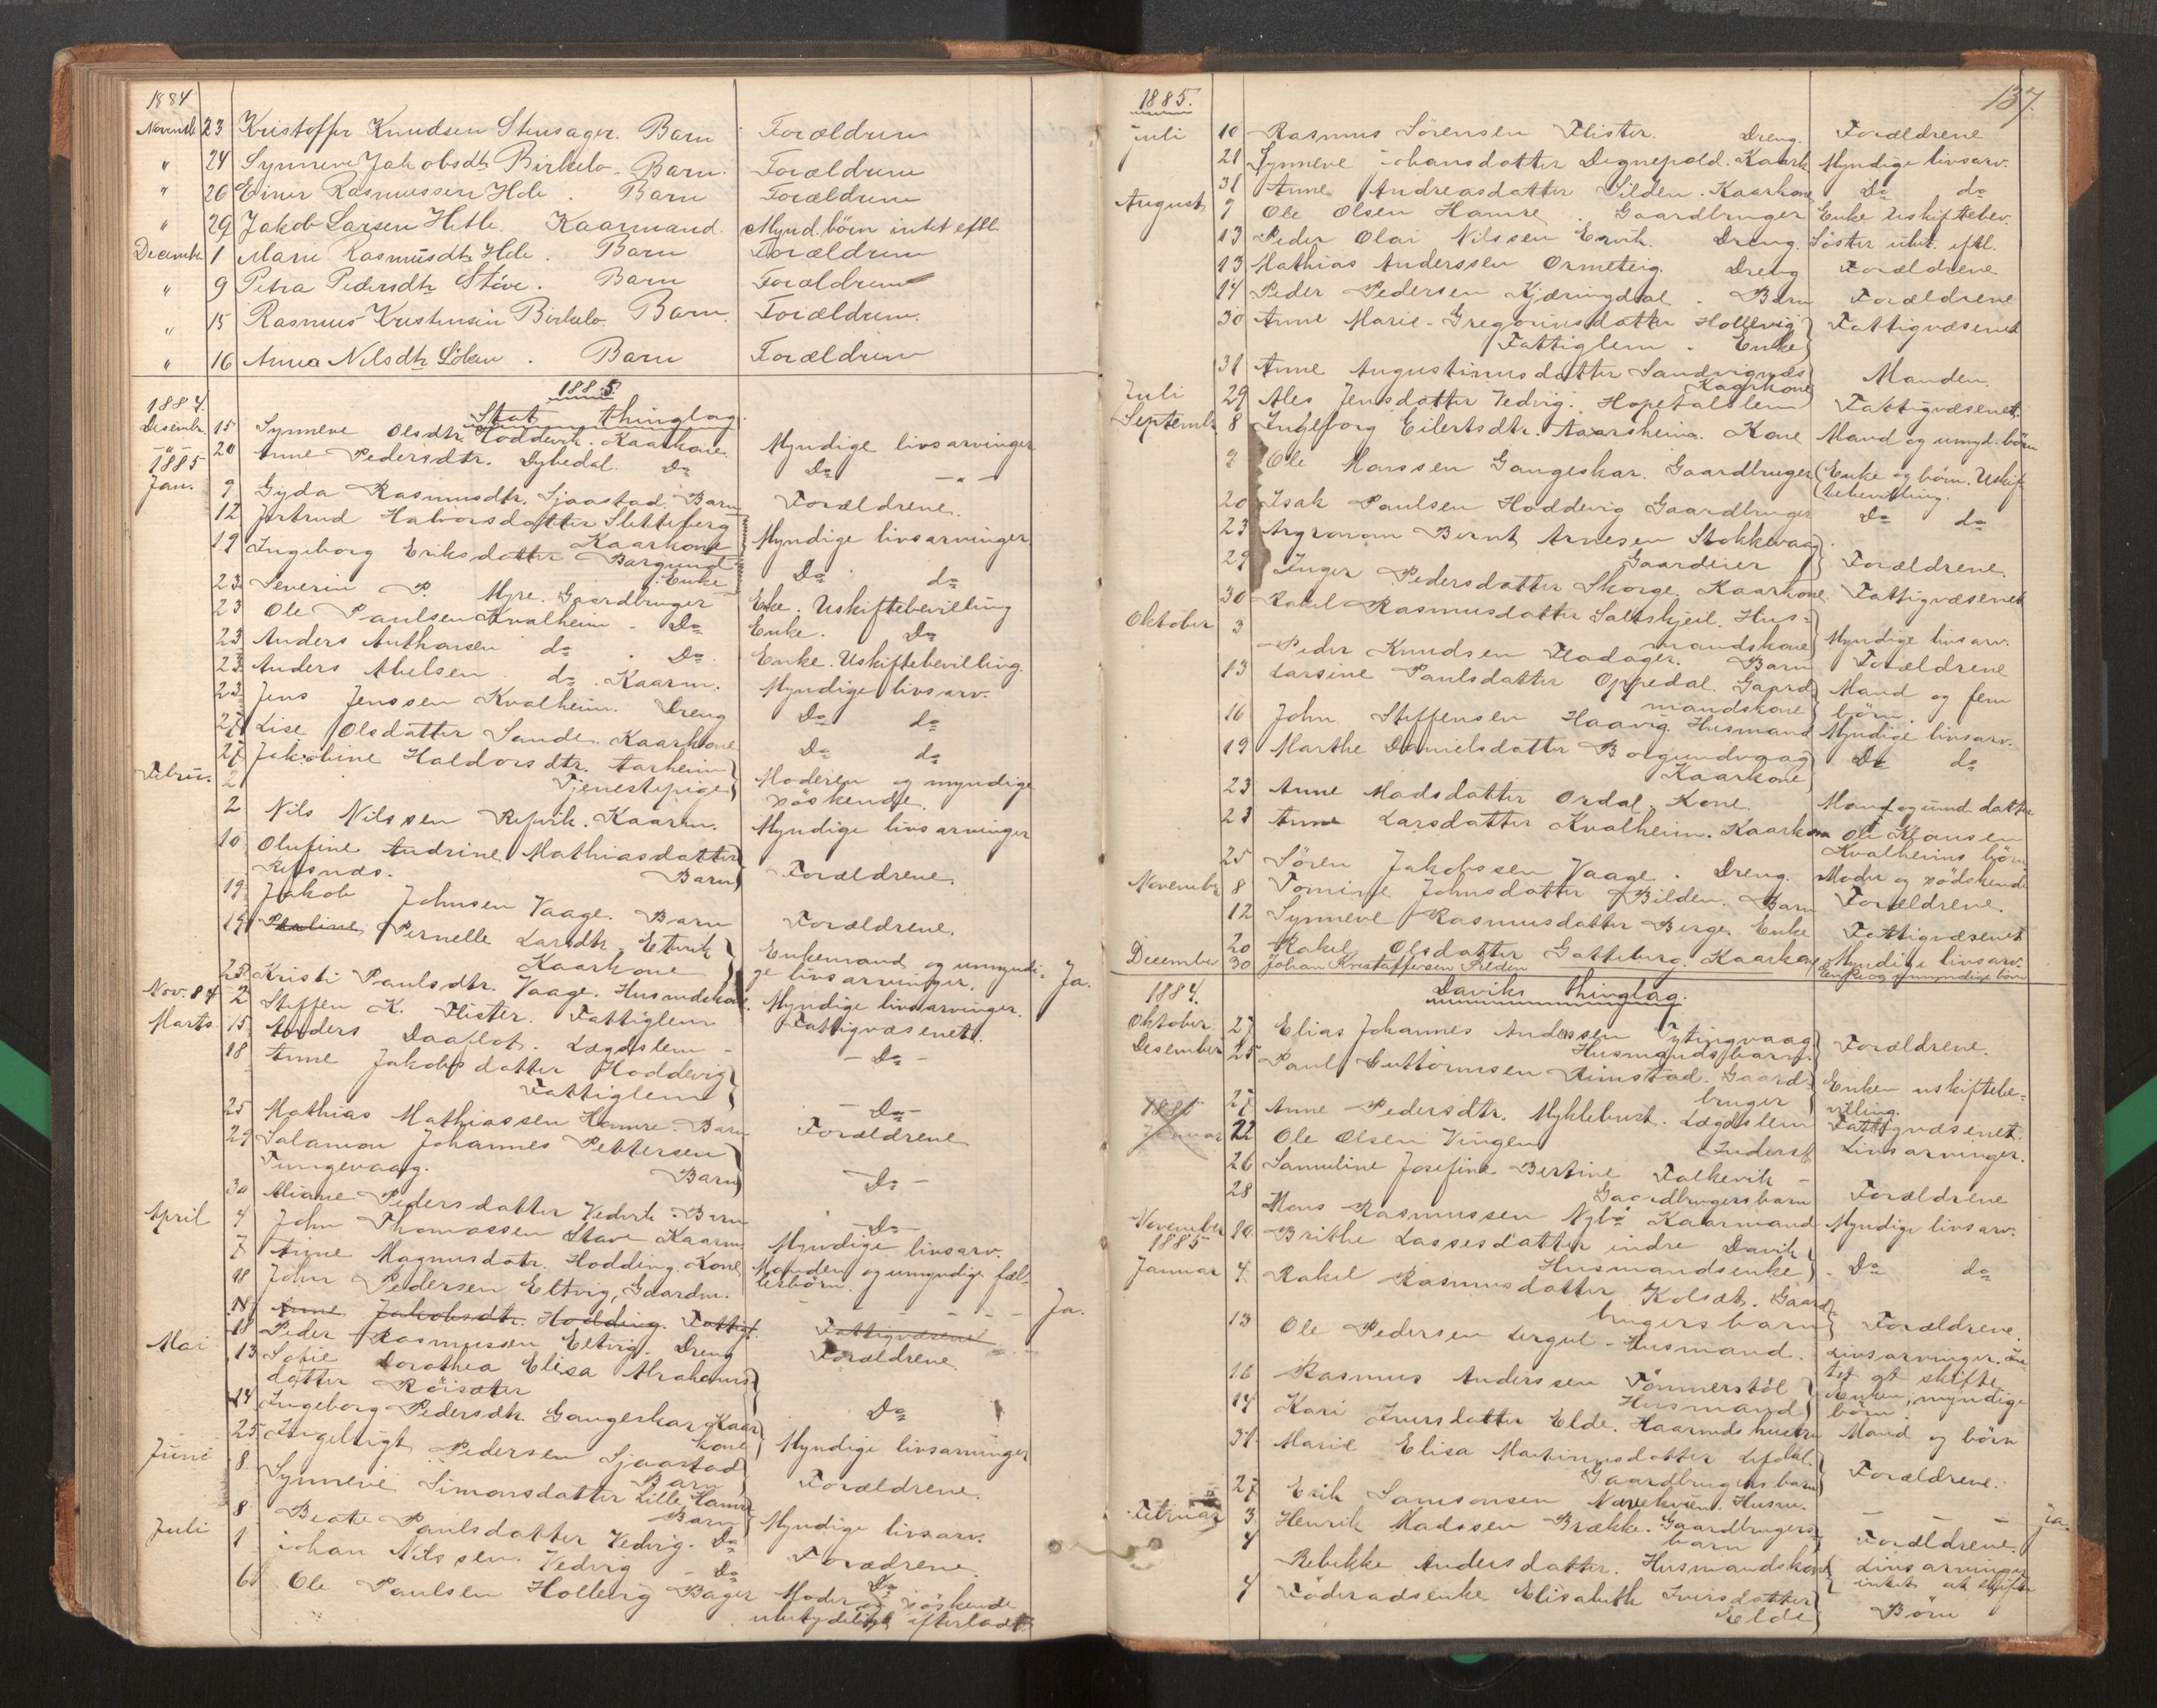 1884
Novembr 23 Kristoffer Knudsen Stensager. Barn Forældrene
" 24 Synneve Jakobsdtr Birkelo. Barn. Forældrene
" 26 Einer Rasmussen Hole. Barn Forældrene
" 29 Jakob Larsen Hetle. Kaarmand. Mynd. börn intet eftl.
Decembr 1 Marie Rasmusdtr Hole. Barn Forældrene
" 9 Petra Pedersdtr Støve. Barn Forældrene
" 15 Rasmus Kristensen Birkelo. Barn. Forældrene.
" 16 Anna Nilsdtr Löken. Barn Forældrene
1885
Stat thinglag.
1884.
Desembr. 15 Synneve Olsdtr Hoddevik. Kaarkone. Myndige livsarvinger
" 20 Anne Pedersdtr. Dybedal. Do Do - " -
1885
Jan. 9 Gyda Rasmusdtr. Sjaastad. Barn Forældrene.
12 Jertrud Halvorsdatter Sletteberg
Kaarkone Myndige livsarvinger.
19 Ingeborg Eriksdatter Borgund
Enke Do do
23 Severin P. Myre. Gaardbruger Enke. Uskiftebevilling
23 Ole Paulsen Kvalheim. Do Enke. Do
23 Anders Anthonsen do. Do. Enke. Uskiftebevilling.
23 Anders Abelsen. do. Kaarm. Myndige livsarv.
23 Jens Jenssen Kvalheim. Dreng Do do
27 Lise Olsdatter Sande. Kaarkone Do do
27 Jakobine Haldorsdtr. Aarheim
Tjenestepige Moderen og myndige
söskende.
Febru. 2
2 Nils Nilssen Refvik. Kaarm. Myndige livsarvinger
10 Olufine Andrine Mathiasdatter
Refsnds. Barn Forældrene.
19 Jakob Johnsen Vaage. Barn Forældrene.
19 Pauline Pernelle Larsdtr. Ervik
Kaarkone Enkemand og umyndi-
ge livsarvinger. Ja.
25 Kristi Paulsdtr. Vaage. Husmdskone. Myndige livsarvinger.
Nov. 84 2 Steffen K. Flister. Fattiglem Fattigvæsenet.
Marts 15 Anders Daaflot. Lægdslem - - Do -
18 Anne Jakobsdatter Hoddevig
Fattiglem - Do -
25 Mathias Mathiassen Hamre. Barn Forældrene
29 Salamon Johannes Pettersen
Tungevaag. Barn - Do -
30 Aliane Pedersdatter Vedvik. Barn - Do -
April 4 John Thomassen Stave Kaarm. Myndige livsarv.
7 Anne Magnusdatr. Hodding. Kone Manden og umyndige fæl-
lesbörn.
18 John Pedersen Eltvig, Gaardm. - - - - Ja.
18 Anne Jakobsdtr. Hodding. Fattigl. Fattigvæsenet
18 Peder Rasmussen Eltvig. Dreng Forældrene
Mai 13 Sofie Dorothea Elisa Abrahams-
datter Röisæter Do
14 Ingeborg Pedersdtr. Gangeskar Kaar
kone Myndige livsarvinger
25 Ingebrigt Pedersen Sjaastad
Barn Forældrene.
Juni 8 Synneve Simonsdatter Lille Hamre
Barn Myndige livsarv.
8 Beate Paulsdatter Vedvig. Do Forædrene.
Juli 1 Johan Nilssen. Vedvig - Do Do
6 Ole Paulsen Hollevig Bager Moder og söskende
ubetydeligt efterladt.
137.
1885.
Juli 10 Rasmus Sörensen Flister. Dreng. Forældrene
21 Synneve Johansdatter Degnepold. Kaark. Myndige livsarv.
31 Anne Andreasdatter Silden. Kaarkone Do do
August 9 Ole Olsen Hamre. Gaardbruger Enke Uskiftebev.
13 Peder Olai Nilssen Ervik. Dreng. Söster ubet. eftl.
13 Mathias Anderssen Ormeteig. Dreng Forældrene
14 Peder Pedersen Kjæringdal. Barn Forældrene
30 Anne Marie Gregoriusdatter Hollevig
Fattiglem. Enke Fattigvæsenet
31 Anne Augustinusdatter Sandvignæs
Kaarkone Manden.
Juli 29 Ales Jensdatter Vedvig. Hopetalslem Fattigvæsenet.
Septembr 8 Ingeborg Eilertsdtr. Aaarsheim. Kone Mand og umynd. börn
9 Ole Monssen Gangeskar. Gaardbruger Enke og börn. Uskif-
tebevilling.
20 Isak Paulsen Hoddevig Gaardbruger Do do
23 Argronom Bernt Arnesen Stokkevaag
Gaardeier Forældrene.
29 Inger Pedersdatter Skorge. Kaarkone Fattigvæsenet
30 Rakel Rasmusdatter Saltskjeil. Hus-
mandskone Myndige livsarv.
Oktober 3 Peder Knudsen Fladager. Barn Forældrene
13 Larsine Paulsdatter Oppedal. Gaard
mandskone Mand og fem
börn.
16 John Steffensen Haavig. Husmand Myndige livsarv.
19 Marthe Danielsdatter Borgundvaag
Kaarkone Do do
23 Anne Madsdatter Ordal. Kone. Mand og umd. datter
23 Anne Larsdatter Kvalheim. Kaarkone Ole Klausen
Kvalheims börn
25 Sören Jakobssen Vaage. Dreng. Moder og södskende
Novembr 8 Tomine Johnsdatter Bilden. Barn Forældrene.
12 Synneve Rasmusdatter Berge. Enke Fattigvæsenet
20 Rakel Olsdatter Gatteberg. Kaarkone Myndige livsarv.
December 30 Johan Kristaffersen Silden Enke og umyndige börn
Daviks thinglag.
1884.
Oktober 27 Elias Johannes Anderssen Tytingvaag
Husmandsbarn. Forældrene.
Desember 25 Paul Guttormsen Rimstad. Gaard-
bruger Enken uskiftebe-
villing.
27 Anne Pedersdtr. Myklebust. Lægdslem Fattigvæsenet.
1885
Januar 22 Ole Olsen Vingen Inderst Livsarvinger.
26 Samuline Josefine Bertine Falkevik -
Gaardbrugersbarn Forældrene
28 Mons Rasmussen Nybö Kaarmand Myndige livsarv.
November 10 Brithe Lassesdatter indre Davik
Husmandsenke Do do
1885
Januar 4 Rakel Rasmusdatter Kolsæt. Gaard-
brugersbarn Forældrene.
13 Ole Pedersen - Husmand. Livsarvinger. in-
tet at skifte
16 Rasmus Anderssen Tömmerstöl
Husmand Enken, myndige
börn.
14 Kari Iversdatter Elde. Kaarmds hustru Mand og börn
31 Marie Elisa Martinusdatter
Gaardbrugersbarn Forældrene.
27 Erik Samsonsen Husm. - - - Ja.
Februar 3 Henrik Madssen Brække. Gaardbrugers-
barn Forældrene.
4 Rebekke Andersdatter. Husmandskone Livsarvinger
intet at skifte
4 Föderadsenke Elisabeth Iversdatter
Elde Börn